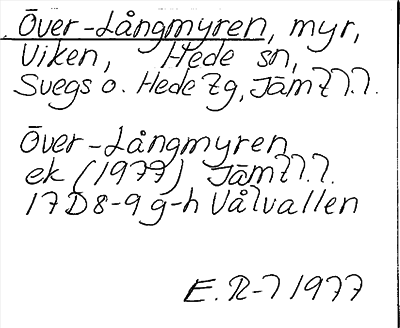 Över-Långmyren, myr,
Viken, Hede sn,
Svegs o. Hede tg, Jämtl.l.
Över-Långmyren
ek (1977) Jämtl.l.
17D8-9g-h Vålvallen
E. R-l 1977